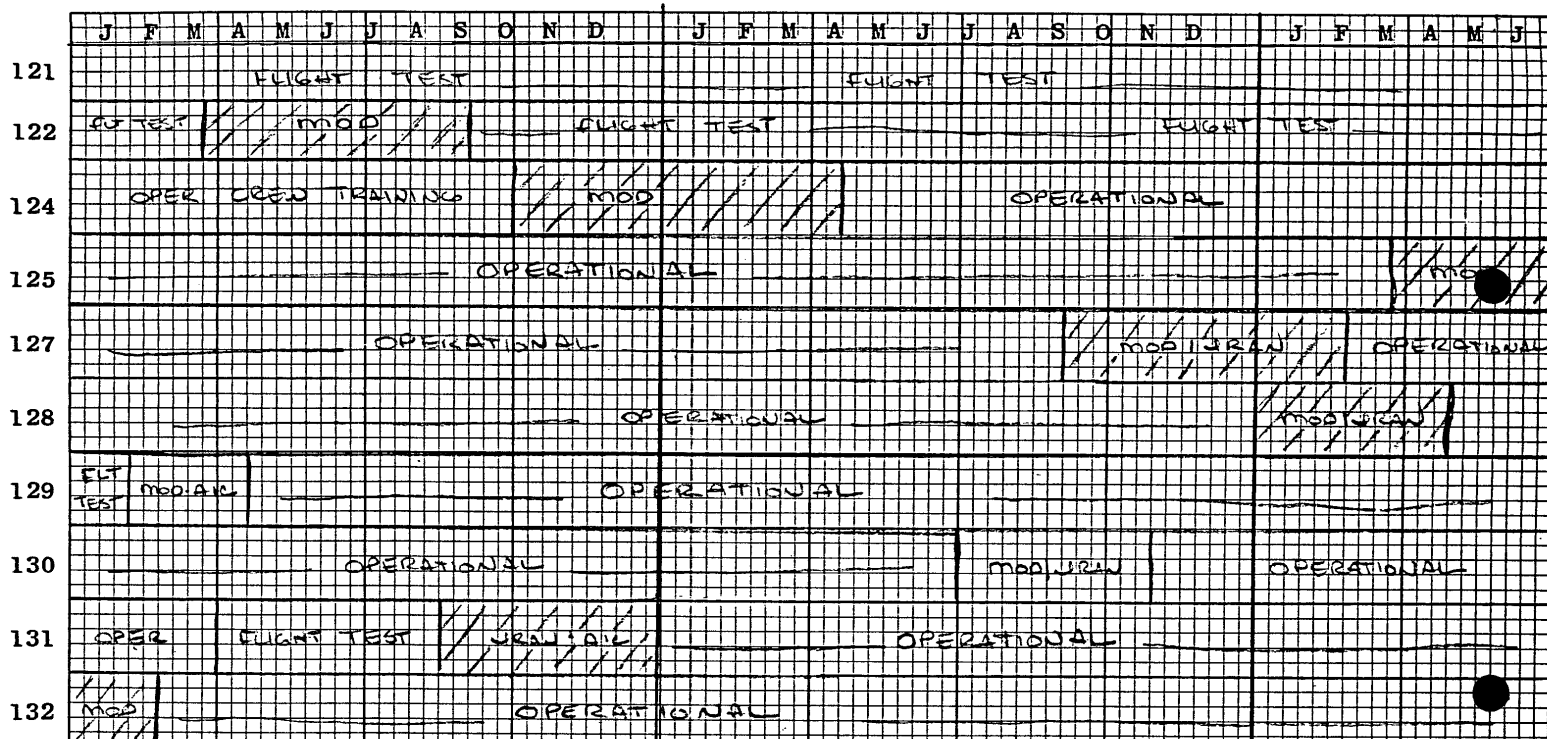 J F M A M J J A S O N D J F M A M J J A S O N D J F M A M J
121 FLIGHT TEST FLIGHT TEST
122 FLT TEST MOD FLIGHT TEST FLIGHT TEST
124 OPER CREW TRAINING MOD OPERATIONAL
125 OPERATIONAL MOD
127 OPERATIONAL MOD/IRAN OPERATIONAL
128 OPERATIONAL MOD/IRAN
129 FLT TEST MOD-A/C OPERATIONAL
130 OPERATIONAL MOD/IRAN OPERATIONAL
131 OPER FLIGHT TEST IRAN-A/C OPERATIONAL
132 MOD OPERATIONAL